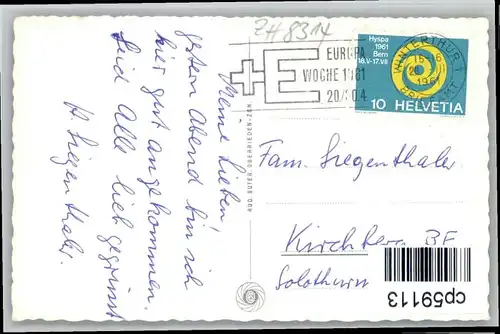 ZH 8314
Meine Lieben!
gestern Abend bin ich
hier gut angekommen.
Seid Alle lieb gegrüsst
H. Siegenthaler.
RUD. SUTER, OBERRIEDEN-ZCH.
EUROPA
WOCHE 1961
20/30.4
+E
Hyspa
1961
Bern
18.V-17.VII
WINTERTHUR 1
10 HELVETIA
Fam. Siegenthaler
Kirchberg
Solothurn
cp59113